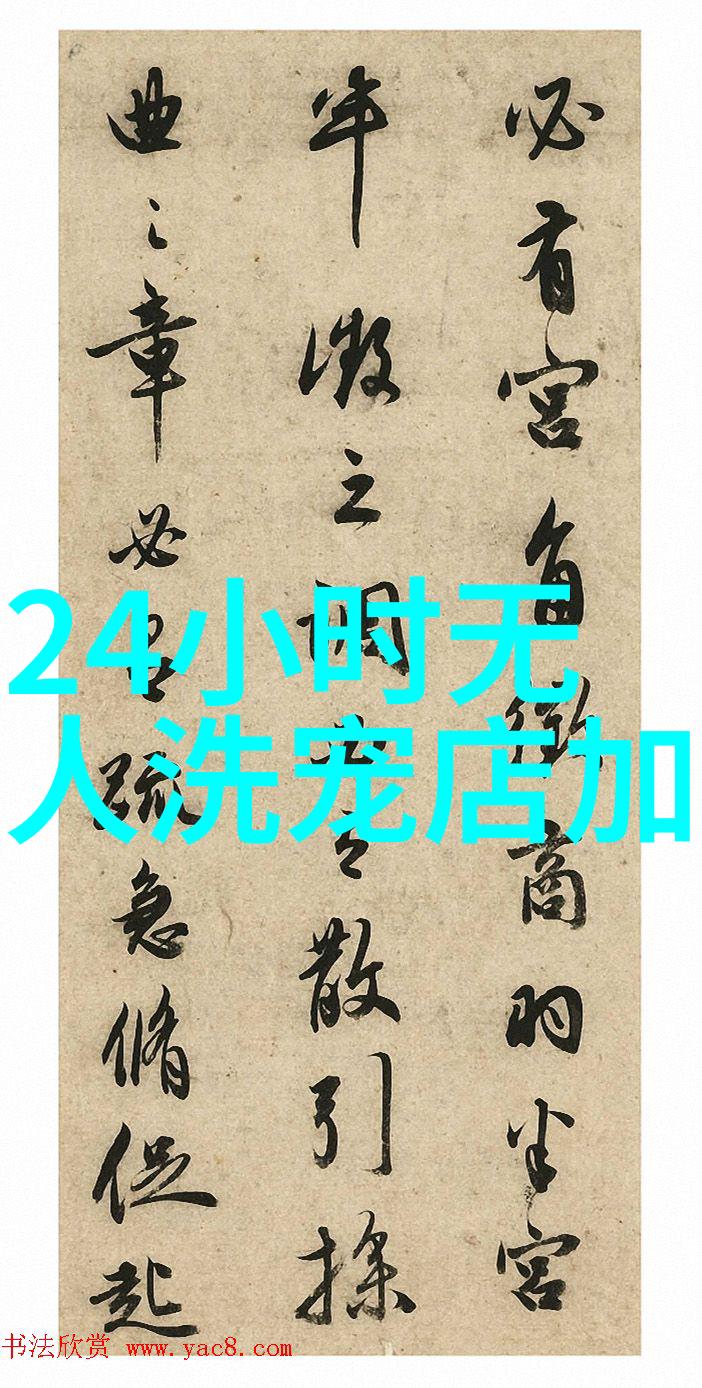 必有宫角徵商羽半宫
半徵之调必有散引操
曲之章必有疏急脩促起
24小时无
人洗宠店加
书法欣赏 www.yac8.com